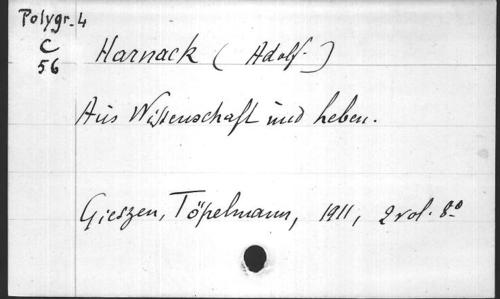 Polygr. 4
C
56
Harnack (Adolf)
Aus Wissenschaft und Leben.
Gieszen, Töpelmann, 1911, 2 vol. 8º